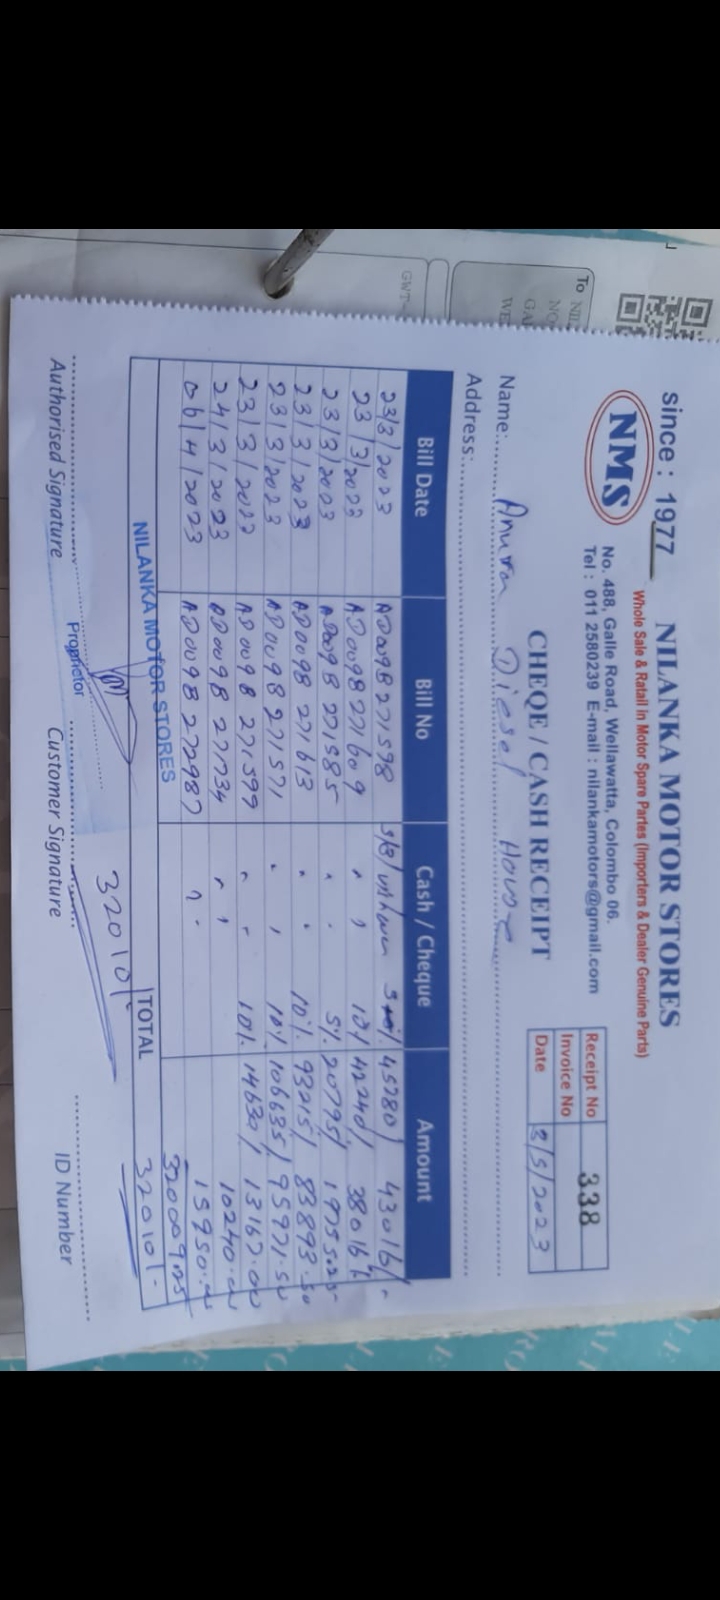 since : 1977
NILANKA MOTOR STORES
Whole Sale & Ratail in Motor Spare Partes (Importers & Dealer Genuine Parts)
NMS
No. 488, Galle Road, Wellawatta, Colombo 06.
Tel : 011 2580239 E-mail : nilankamotors@gmail.com
CHEQE / CASH RECEIPT
Receipt No 338
Invoice No
Date 8/5/2023
Name: Anura Diesel House
Address:
Bill Date Bill No Cash / Cheque Amount
23/3/2023 AD009B271598 45280/ 43016/-
23/3/2023 AD009B271609 10% 42240/ 38016/-
23/3/2023 AD009B271585 5% 20795/ 19755.25
23/3/2023 AD009B271613 10% 93215/ 83893.50
23/3/2023 AD009B271571 10% 106635/ 95971.50
23/3/2023 AD009B271599 10% 14630/ 13167.00
24/3/2023 AD009B271734 10240.00
06/4/2023 AD009B272987 15950.00
320009.25
NILANKA MOTOR STORES
TOTAL 320101-
320101-
Proprietor
Authorised Signature Customer Signature ID Number
To NIL
NO
GA
WE
GWT-